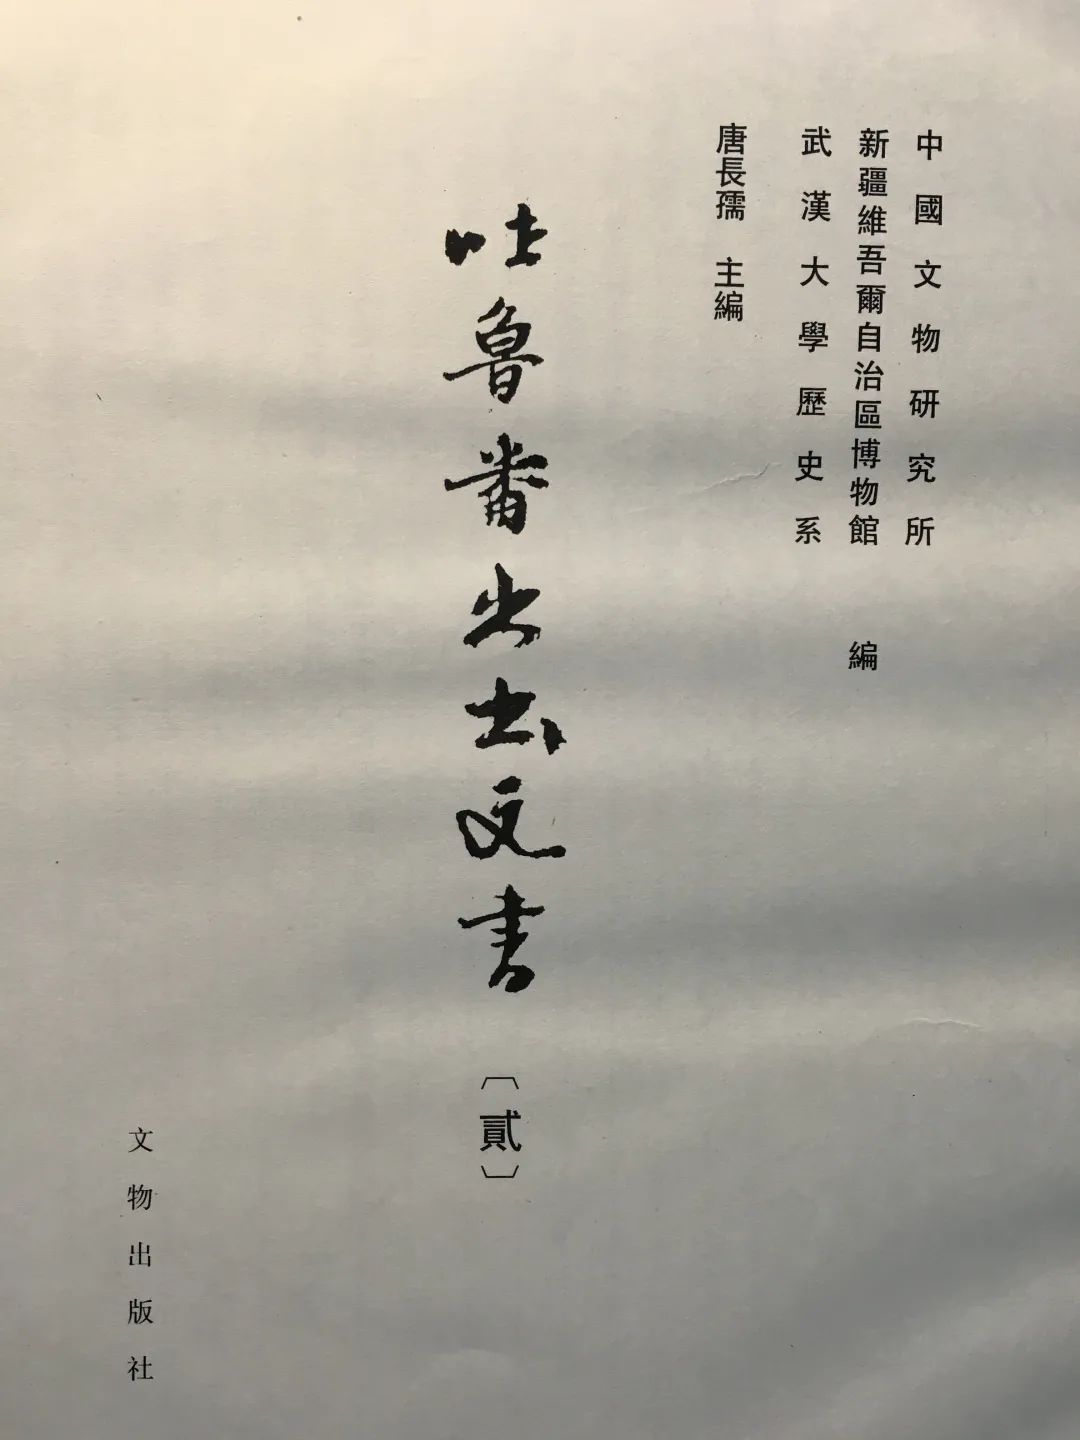 中國文物研究所
新疆維吾爾自治區博物館 編
武漢大學歷史系
唐長孺 主編
吐魯番出土文書
〔貳〕
文物出版社